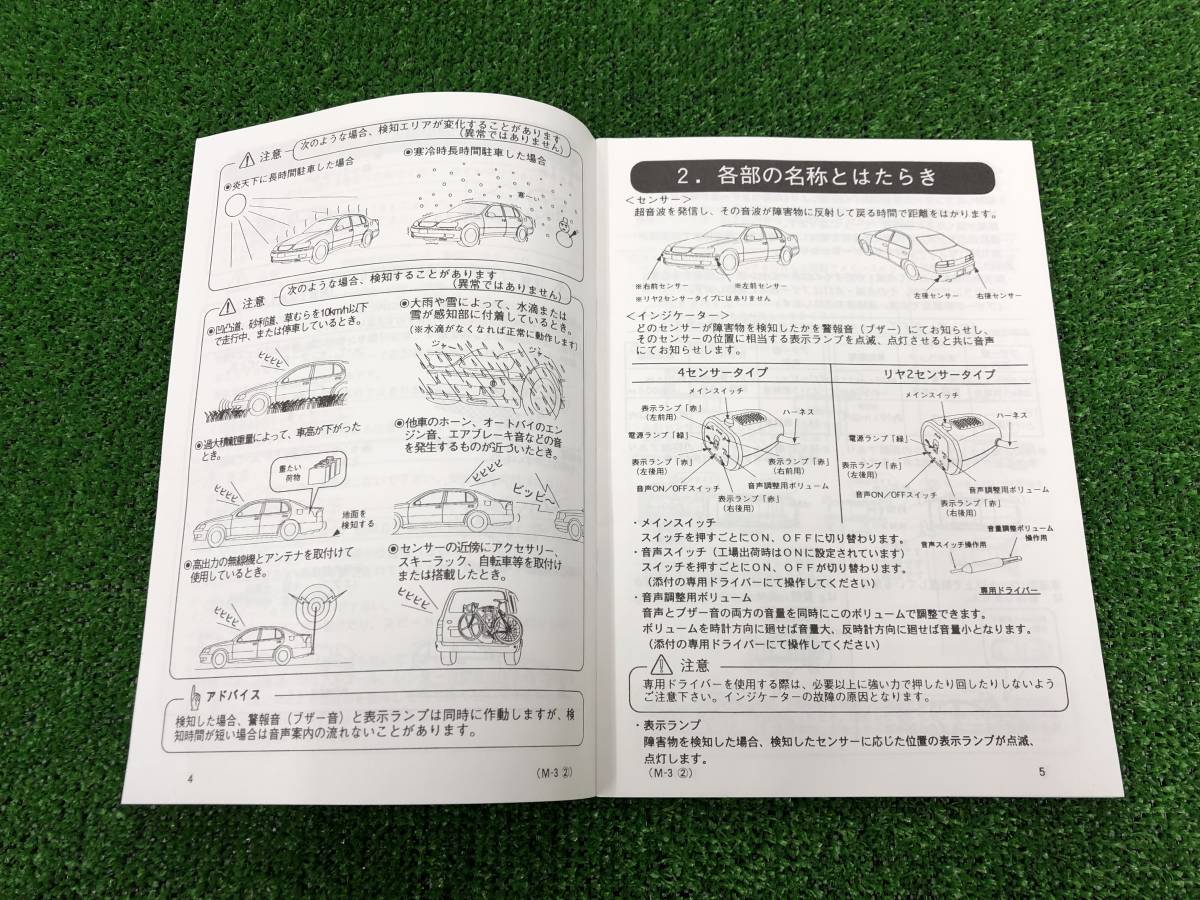 注意
次のような場合、検知エリアが変化することがあります
(異常ではありません)
◉炎天下に長時間駐車した場合
◉寒冷時長時間駐車した場合
寒〜い
注意
次のような場合、検知することがあります
(異常ではありません)
◉凹凸道、砂利道、草むらを10km/h以下
で走行中、または停車しているとき。
ピピピピ
◉大雨や雪によって、水滴または
雪が感知部に付着しているとき。
(※水滴がなくなれば正常に動作します)
ジャー
ジャー
◉過大積載重量によって、車高が下がった
とき。
ピピピピ
重たい
荷物
地面を
検知する
◉他車のホーン、オートバイのエン
ジン音、エアブレーキ音などの音
を発生するものが近づいたとき。
ピピピピ
ピッピ〜
◉高出力の無線機とアンテナを取付けて
使用しているとき。
ピピピピ
◉センサーの近傍にアクセサリー、
スキーラック、自転車等を取付け
または搭載したとき。
ピピピピ
アドバイス
検知した場合、警報音(ブザー音)と表示ランプは同時に作動しますが、検
知時間が短い場合は音声案内の流れないことがあります。
4
(M-3 ②)
2. 各部の名称とはたらき
<センサー>
超音波を発信し、その音波が障害物に反射して戻る時間で距離をはかります。
※右前センサー
※左前センサー
※リヤ2センサータイプにはありません
左後センサー
右後センサー
<インジケーター>
どのセンサーが障害物を検知したかを警報音(ブザー)にてお知らせし、
そのセンサーの位置に相当する表示ランプを点滅、点灯させると共に音声
にてお知らせします。
4センサータイプ
メインスイッチ
表示ランプ「赤」
(左前用)
ハーネス
電源ランプ「緑」
表示ランプ「赤」
(左後用)
表示ランプ「赤」
(右前用)
音声ON/OFFスイッチ
音声調整用ボリューム
表示ランプ「赤」
(右後用)
リヤ2センサータイプ
メインスイッチ
ハーネス
電源ランプ「緑」
表示ランプ「赤」
(左後用)
音声ON/OFFスイッチ
音声調整用ボリューム
表示ランプ「赤」
(右後用)
・メインスイッチ
スイッチを押すごとにON、OFFに切り替わります。
・音声スイッチ(工場出荷時はONに設定されています)
スイッチを押すごとにON、OFFが切り替わります。
(添付の専用ドライバーにて操作してください)
音量調整ボリューム
操作用
音声スイッチ操作用
専用ドライバー
・音声調整用ボリューム
音声とブザー音の両方の音量を同時にこのボリュームで調整できます。
ボリュームを時計方向に廻せば音量大、反時計方向に廻せば音量小となります。
(添付の専用ドライバーにて操作してください)
注意
専用ドライバーを使用する際は、必要以上に強い力で押したり回したりしないよう
ご注意下さい。インジケーターの故障の原因となります。
・表示ランプ
障害物を検知した場合、検知したセンサーに応じた位置の表示ランプが点滅、
点灯します。
(M-3 ②)
5